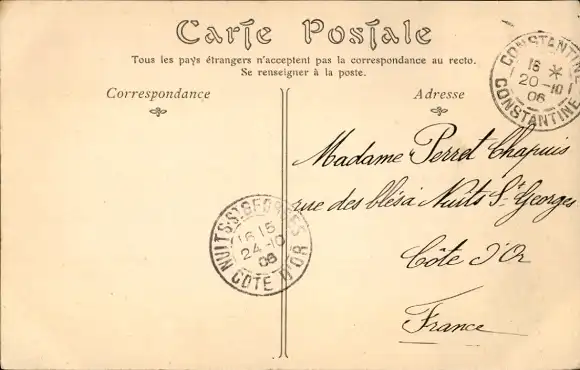 Carte Postale
Tous les pays étrangers n'acceptent pas la correspondance au recto.
Se renseigner à la poste.
Correspondance
Adresse
CONSTANTINE
16 *
20-10
06
CONSTANTINE
Madame Perret Chapuis
rue des blés à Nuits St Georges
Côte d'Or
France
NUITS-S-GEORGES
16 15
24-10
06
COTE D'OR